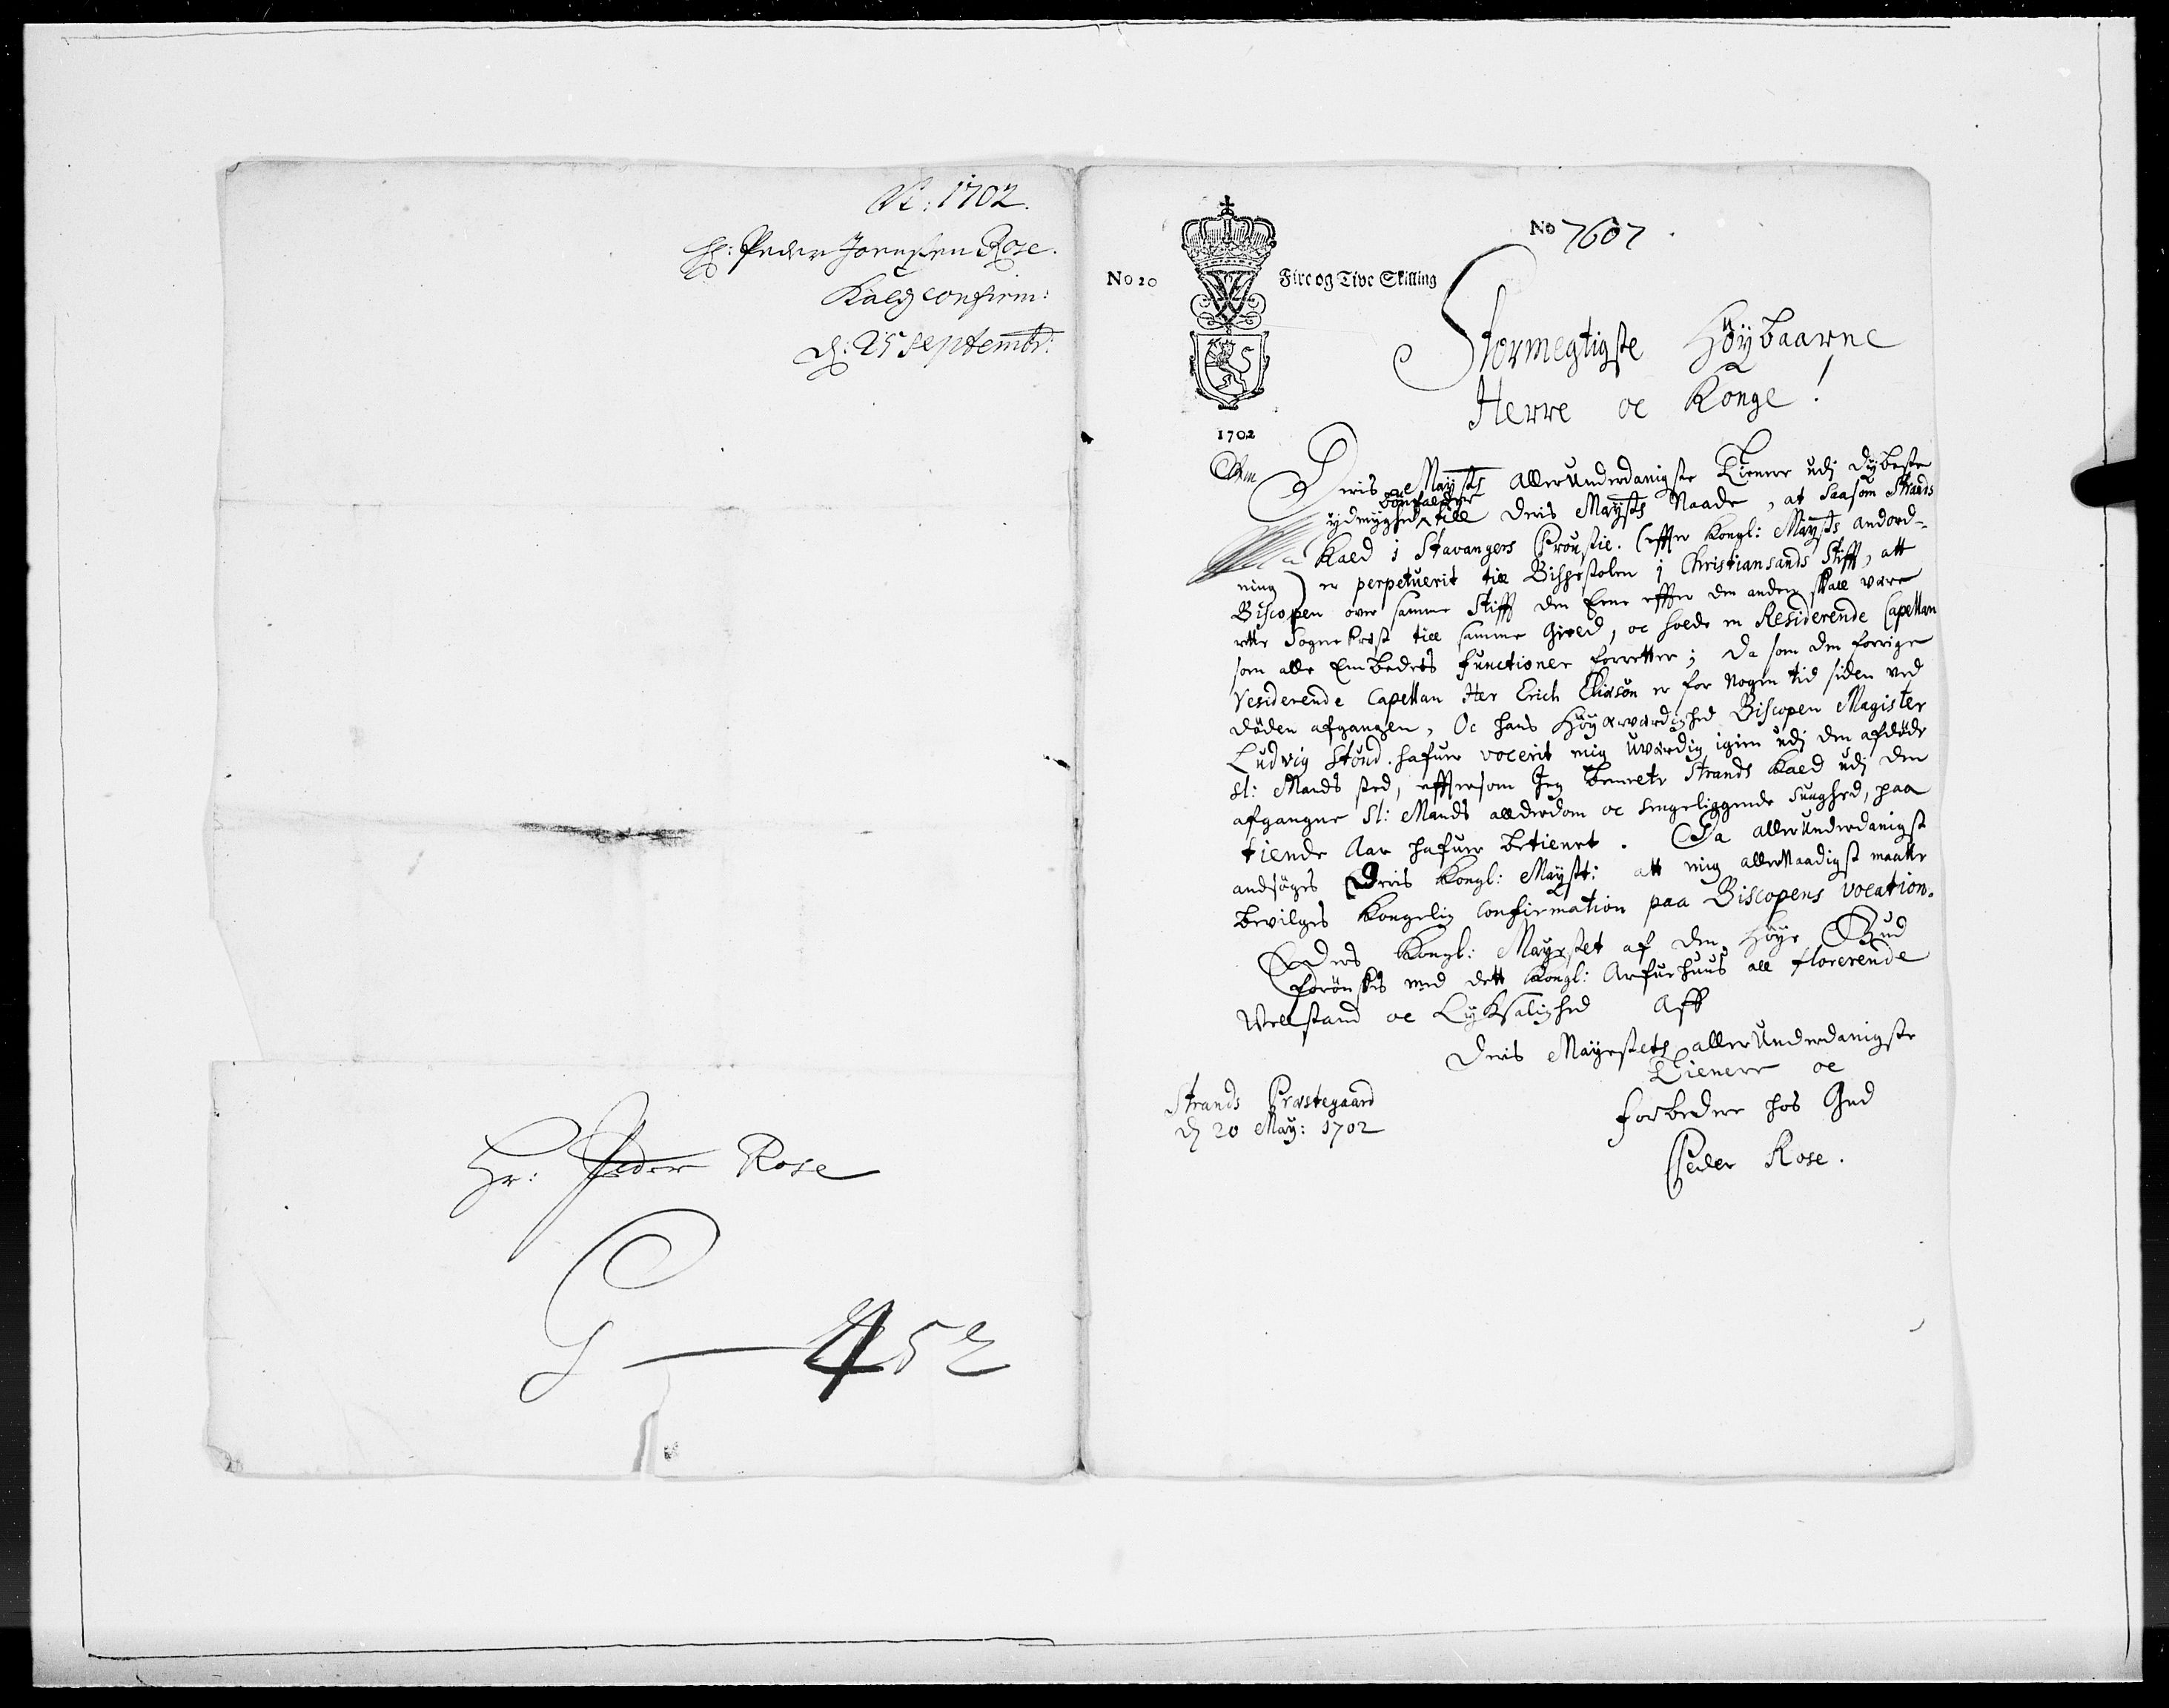 Ao: 1702.
Hr: Peder Jorensen Rose.
Kalds confirm:
d: 25 Septembr:
Hr: Peder Rose
452
No 7607.
No 20
Fire og Tive Skilling
1702
Stormegtigste Höybaarne
Herre oc Konge!
Deris Maysts allerUnderdanigste Tienere udj dybeste
bönfalder
ydmyghed till Deris Maysts Naade, at saasom Strands
Kald i Stavangers Proustie. (effter Kongl: Maysts andord-
ning) er perpetuerit till Bispestolen i Christiansands Stifft, att
Biscopen over samme Stifft den Eene effter den anden skall være
rette Sogne Prest till samme Gield, oc holde en Residerende Capellan
som alle Embedets Functioner forretter; da som den forrige
residerende Capellan Her Erich Elixsön er for nogen tid siden ved
döden afgangen, Oc hans Höyærværdighed Biscopen Magister
Ludvig Stoud hafuer vocerit mig uværdig igien udj den afdöde
Sl: Mands sted, efftersom Jeg bemelte Strands Kald udj den
afgangne Sl: Mands allderdom oc sengeliggende Suaghed, paa
tiende Aar hafuer betienet. Da allerUnderdanigst
andsöges Deris Kongl: Mayst: att mig allerNaadigst maatte
bevilges Kongelig Confirmation paa Biscopens Vocation.
Eders Kongl: Mayestet af den höye Gud
forönskis med dett Kongl: Arfuehuus all florerende
Velstand oc Lyksalighed Aff
Deris Mayestets allerUnderdanigste
Tienere oc
forbedere hos Gud
Peder Rose.
Strands Præstegaard
d 20 May: 1702